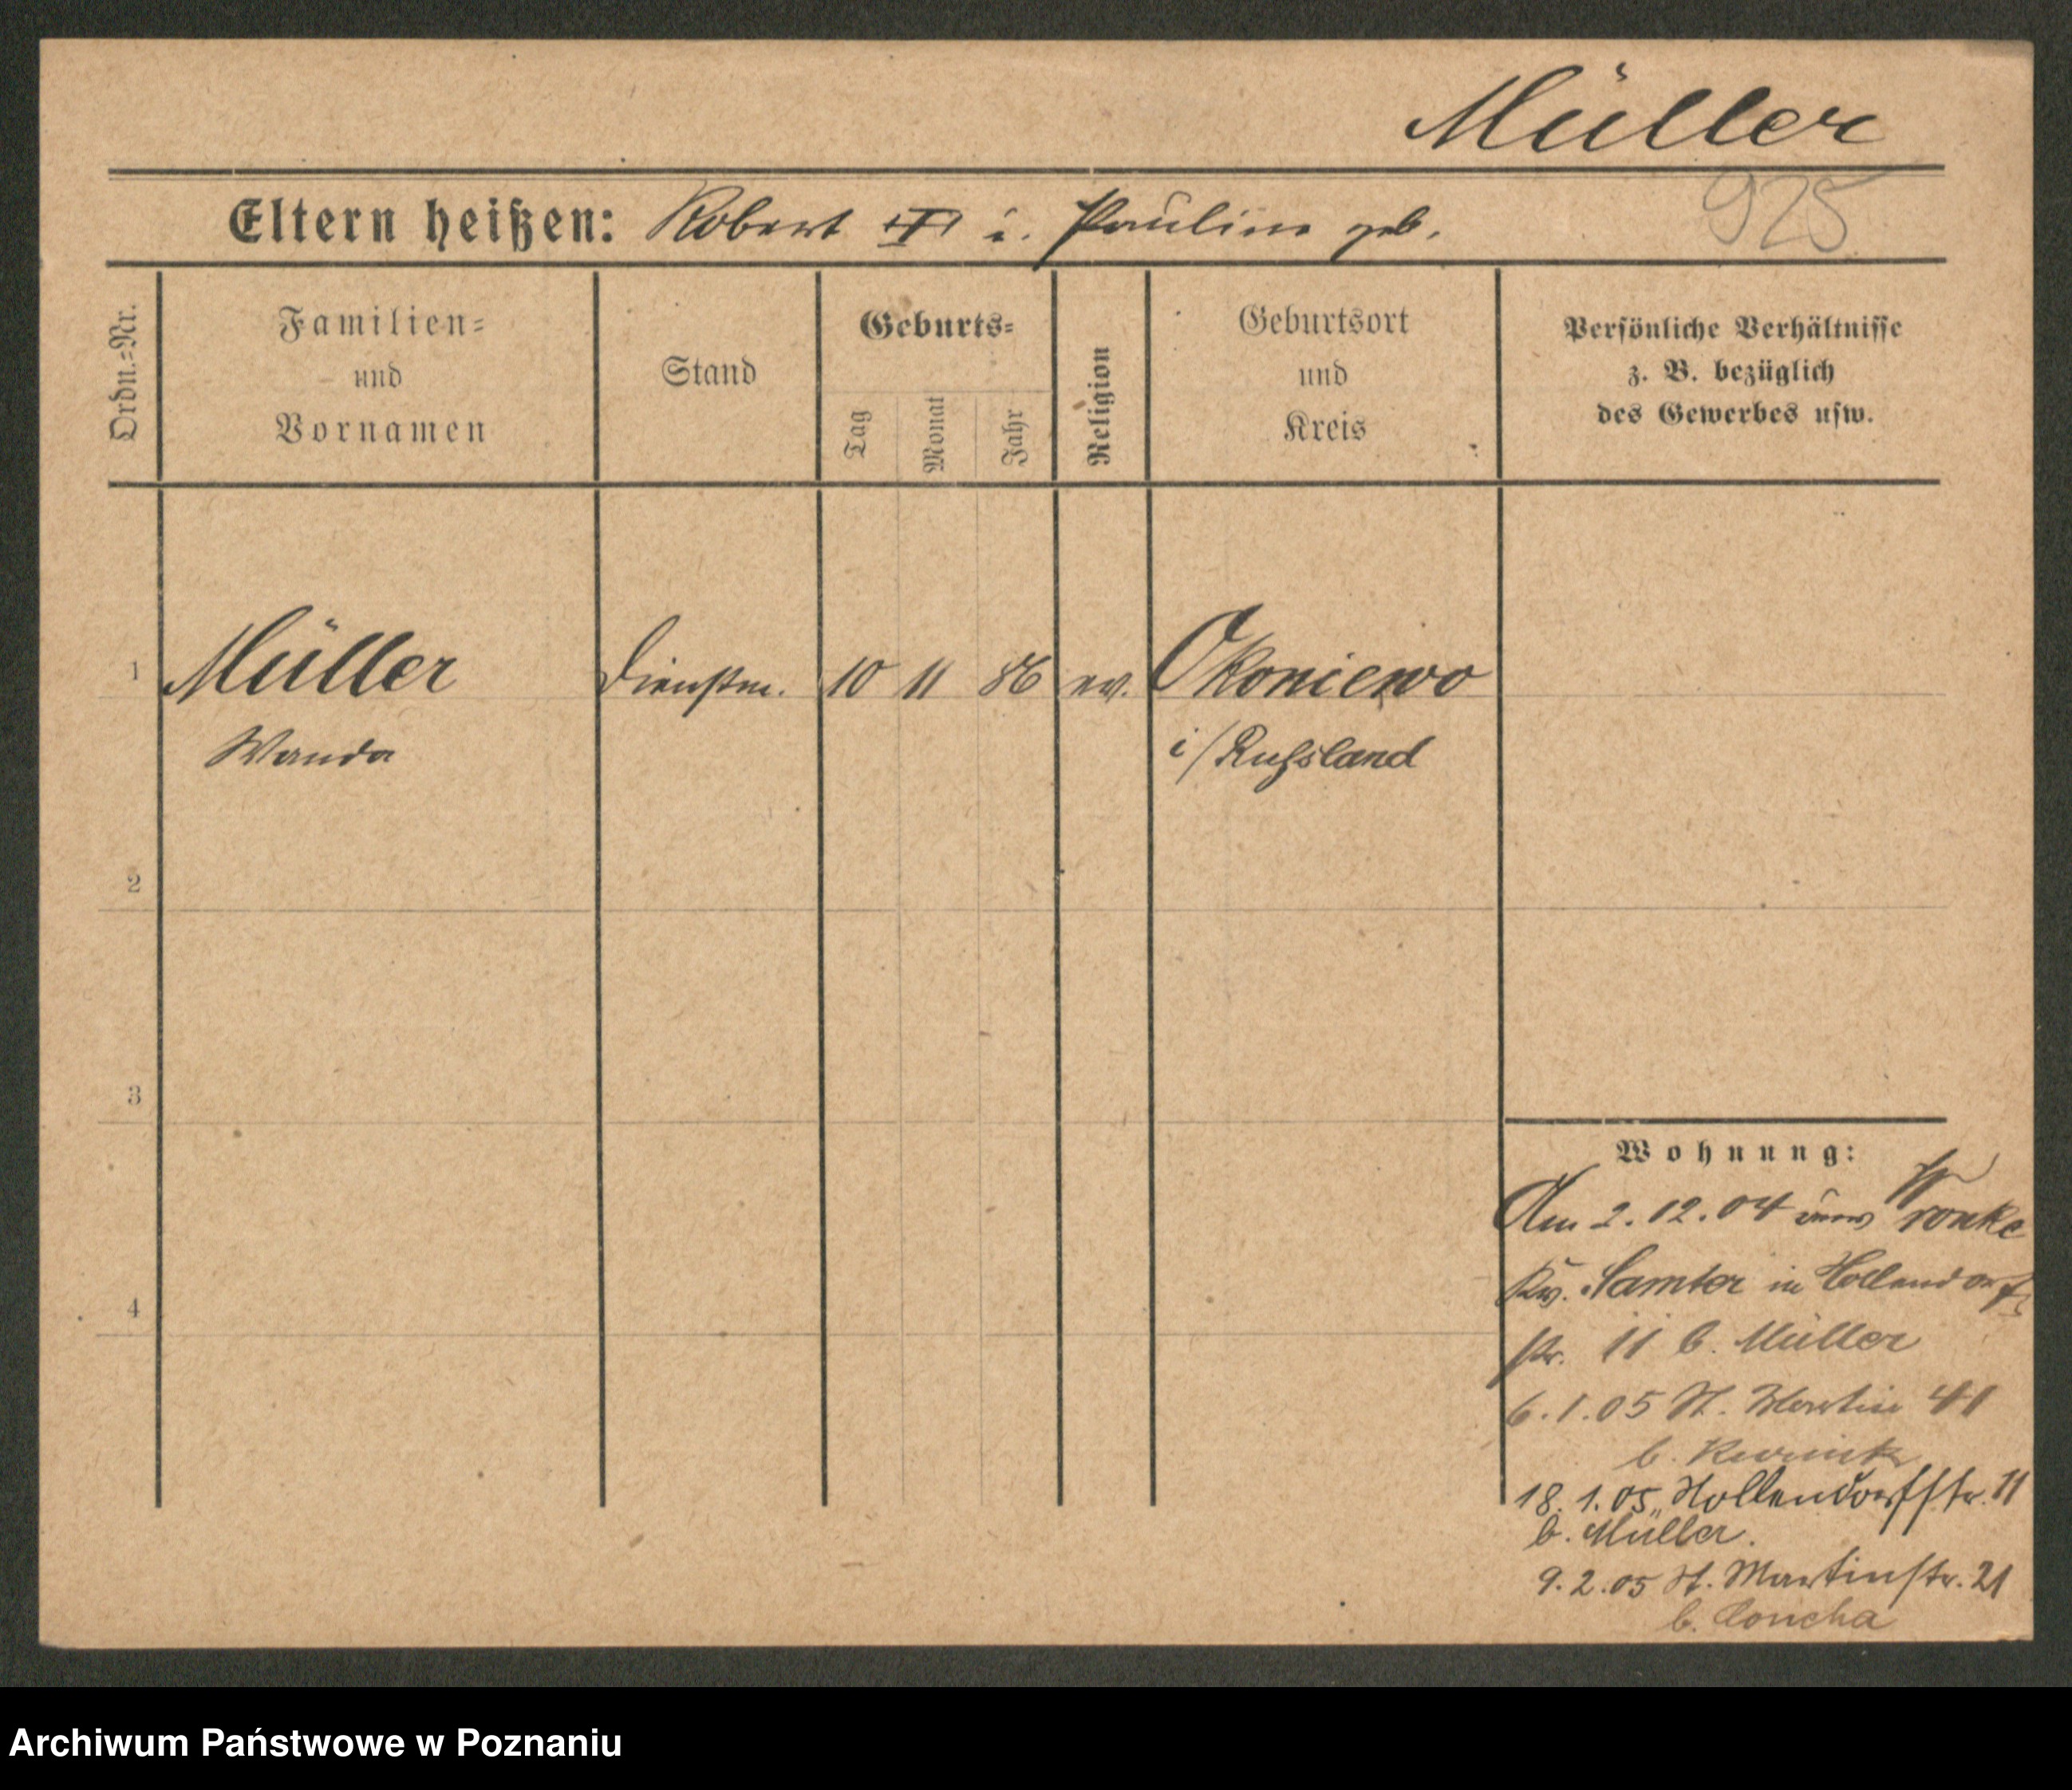 Müller
925
Eltern heißen: Robert u. Pauline geb.
Ordn.=Nr.
Familien=
und
Vornamen
Stand
Geburts=
Tag
Monat
Jahr
Religion
Geburtsort
und
Kreis
Persönliche Verhältnisse
z. B. bezüglich
des Gewerbes usw.
1 Müller Dienstm. 10 11 86 ev. Okoniewo
Wanda i/Rußland
2
3
4
Wohnung:
Am 2.12.04 von Wronke
Kr. Samter in Hollendorff
str. 11 b. Müller
6.1.05 St. Martin 41
b.
18.1.05 Hollendorffstr. 11
b. Müller.
9.2.05 St. Martinstr. 21
b. Concha
Archiwum Państwowe w Poznaniu